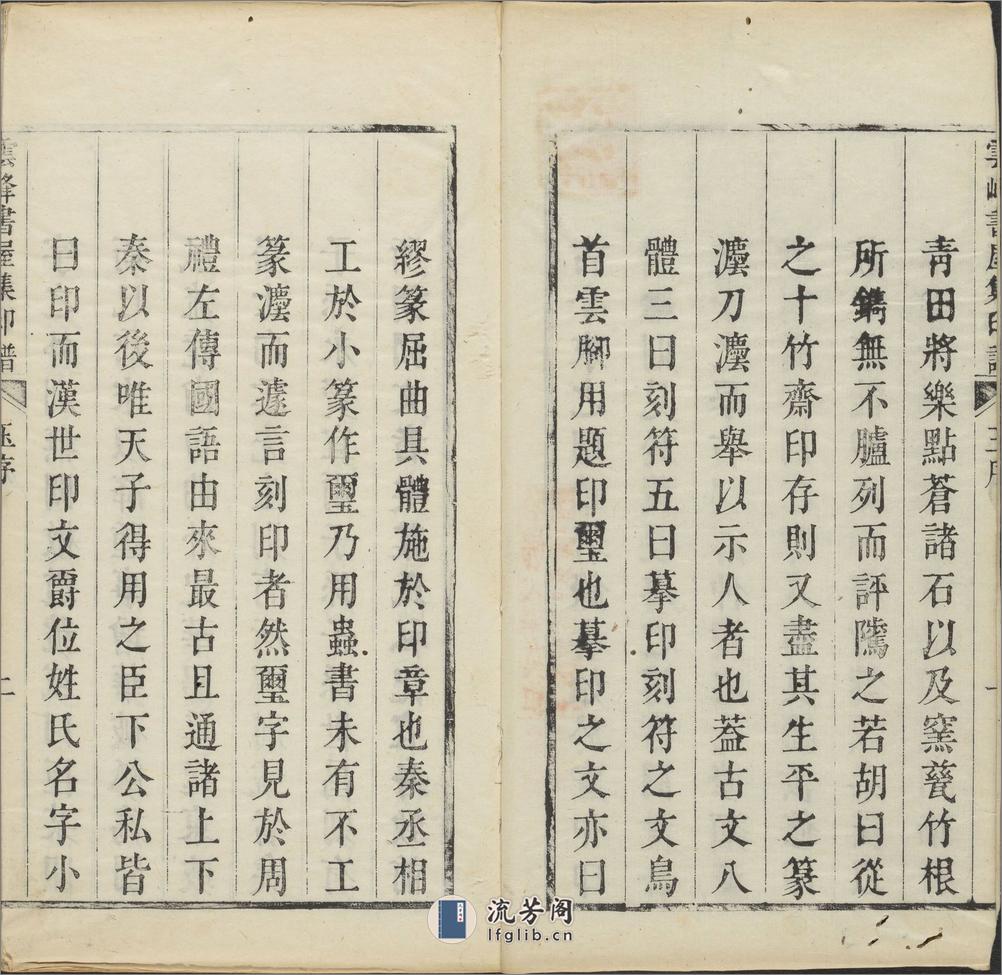 青田將樂點蒼諸石以及窯甆竹根
所鐫無不臚列而評隲之若胡曰從
之十竹齋印存則又盡其生平之篆
灋刀灋而舉以示人者也葢古文八
體三曰刻符五曰摹印刻符之文鳥
首雲腳用題印璽也摹印之文亦曰
繆篆屈曲具體施於印章也秦丞相
工於小篆作璽乃用蟲書未有不工
篆灋而遽言刻印者然璽字見於周
禮左傳國語由來最古且通諸上下
秦以後唯天子得用之臣下公私皆
曰印而漢世印文爵位姓氏名字小
雲峰書屋集印譜
流芳阁
lfglib.cn